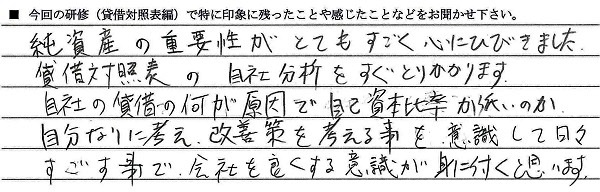 ■ 今回の研修（貸借対照表編）で特に印象に残ったことや感じたことなどをお聞かせ下さい。
純資産の重要性がとてもすごく心にひびきました.
貸借対照表の自社分析をすぐとりかかります.
自社の貸借の何が原因で自己資本比率が低いのか
自分なりに考え.改善策を考える事を意識して日々
すごす事で.会社を良くする意識が身に付くと思います.